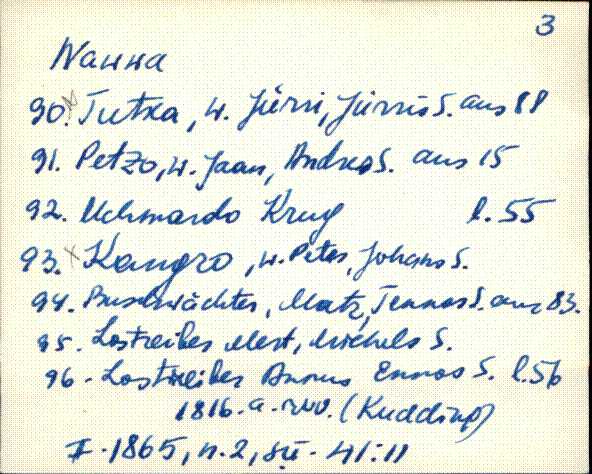 3
Nawwa
90. Tutka, w. Jürri, Jürris S. aus 88
91. Petzo, w. Jaan, Andres S. aus 15
92. Uchmardo Krug l. 55
93. Kangro, w. Peter, Johans S.
94. Buschwächter, Matz, Tennos S. aus 83.
95. Lostreiber Mert, Michels S.
96. Lostreiber Annus Ennos S. l. 56
1816. a. rev. (Kudding)
I-1865, n. 2, sü-41:11